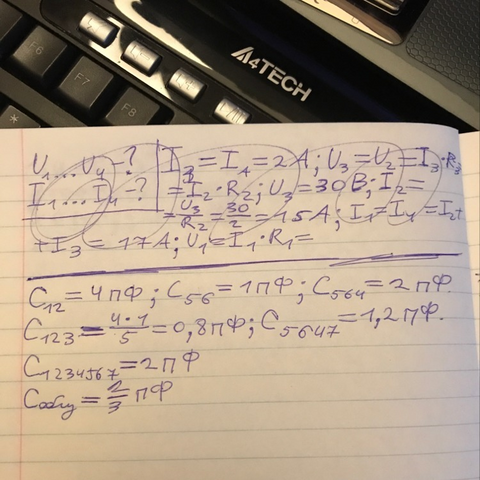 F6
F7
F8
A4TECH
U₁...U₄-? I₃=I_A=2A; U₃=U₂=I₃·R₃
I₁...I₄-? =I₂·R₂; U₃=30 В; I₂=
=U₃/R₂=30/2=15A; I₁=I₄=I₂+
+I₃=17A; U₁=I₁·R₁=
C₁₂=4пФ; C₅₆=1пФ; C₅₆₄=2пФ.
C₁₂₃=4·1/5=0,8пФ; C₅₆₄₇=1,2пФ.
C₁₂₃₄₅₆₇=2пФ
Cобщ=2/3пФ